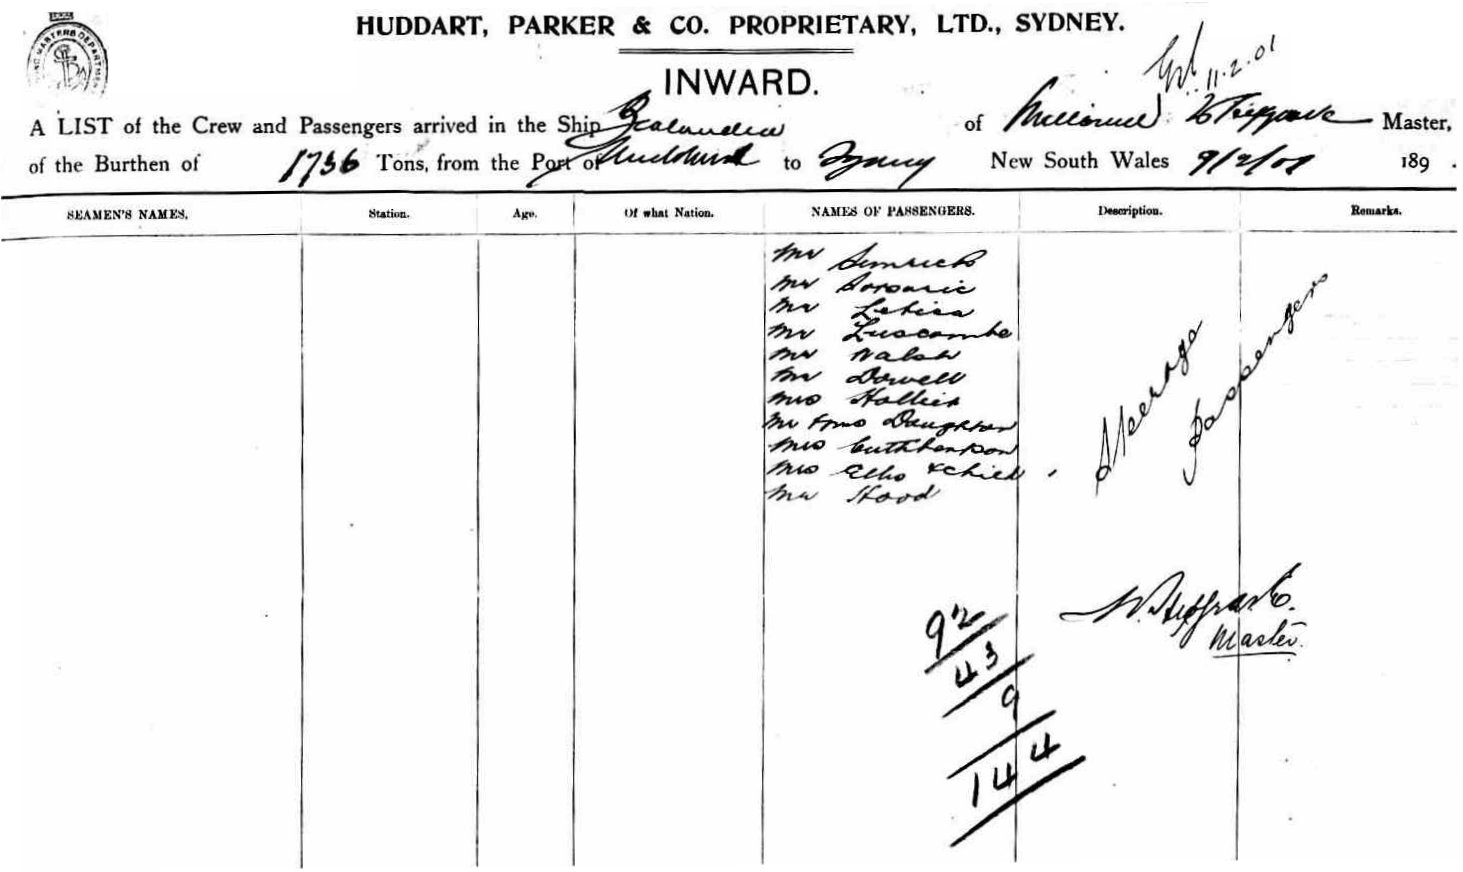 HUDDART, PARKER & CO. PROPRIETARY, LTD., SYDNEY.
11.2.01
INWARD.
A LIST of the Crew and Passengers arrived in the Ship Zealandia of Master,
of the Burthen of 1736 Tons, from the Port of to Sydney New South Wales 9/2/01 189 .
SEAMEN'S NAMES. Station. Age. Of what Nation. NAMES OF PASSENGERS. Description. Remarks.
Mr
Mr
Mr
Mr Luscombe
Mr Walsh
Mr Dowell
Mrs Hollier
Mr & Mrs Daughton
Mrs Cuthbertson
Mrs & Child
Mr Hood
Steerage Passengers
92
43
9
144
Master